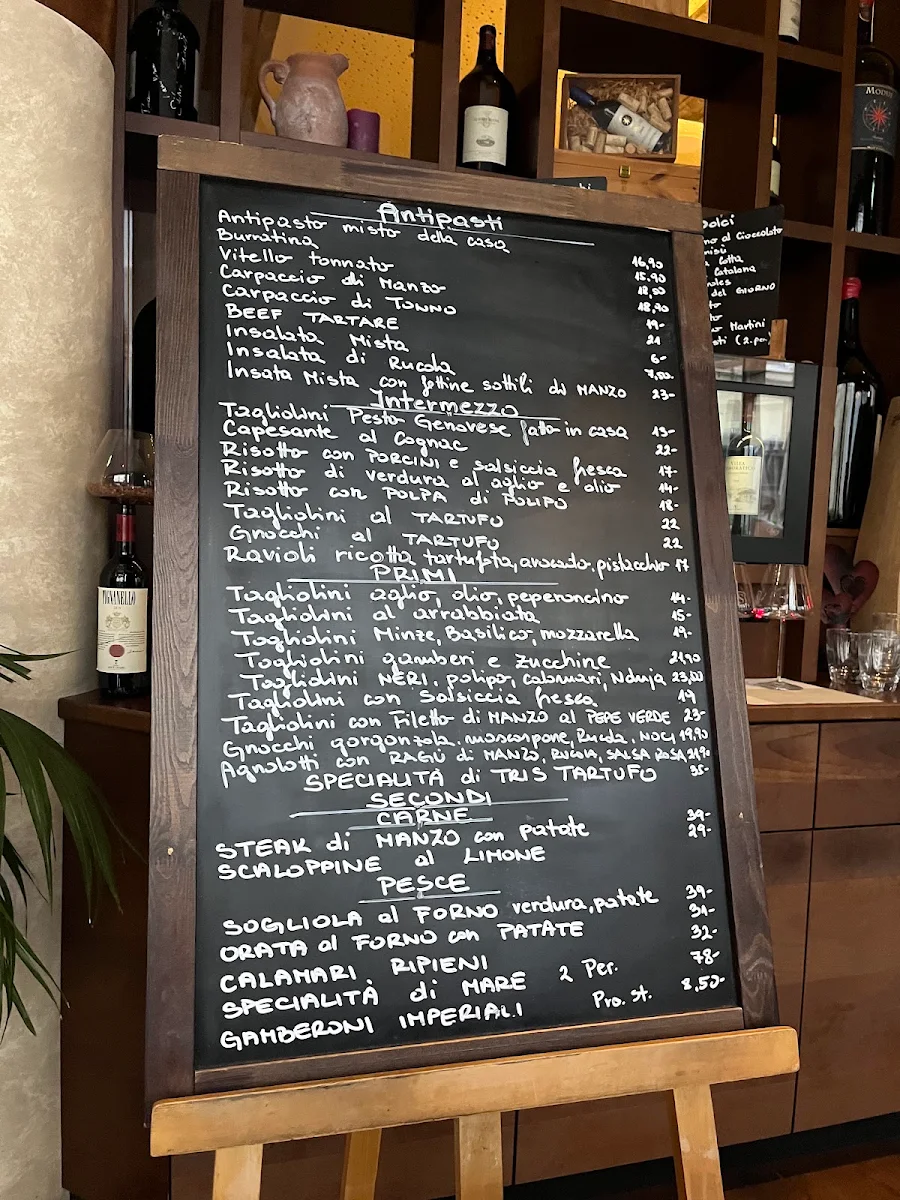 Antipasti
Antipasto misto della casa 16,90
Burratina 15,90
Vitello tonnato 18,50
Carpaccio di Manzo 18,90
Carpaccio di TONNO 19-
BEEF TARTARE 21
Insalata Mista 6-
Insalata di Rucola 7,50
Insata Mista con fettine sottili di MANZO 23-
Intermezzo
Tagliolini Pesto Genovese fatto in casa 19-
Capesante al Cognac 22-
Risotto con PORCINI e salsiccia fresca 17-
Risotto di verdura al aglio e olio 14-
Risotto con POLPA di POLIPO 18-
Tagliolini al TARTUFO 22
Gnocchi al TARTUFO 22
Ravioli ricotta tartufata, avocado, pistacchio 17
PRIMI
Tagliolini aglio, olio, peperoncino 14-
Tagliolini al arrabbiata 15-
Tagliolini Minze, Basilico, mozzarella 19-
Tagliolini gamberi e zucchine 21,90
Tagliolini NERI, polipo, calamari, Nduja 23,00
Tagliolini con Salsiccia fresca 19
Tagliolini con Filetto di MANZO al PEPE VERDE 23-
Gnocchi gorgonzola, mascarpone, Rucola, NOCI 19,90
Agnolotti con RAGÙ di MANZO, RUCOLA, SALSA ROSA 21,90
SPECIALITÀ di TRIS TARTUFO 35-
SECONDI
CARNE
STEAK di MANZO con patate 39-
SCALOPPINE al LIMONE 29-
PESCE
SOGLIOLA al FORNO verdura, patate 39-
ORATA al FORNO con PATATE 31-
CALAMARI RIPIENI 32-
SPECIALITÀ di MARE 2 Per. 78-
GAMBERONI IMPERIALI Pro. st. 8,50-
Dolci
al Cioccolato
Catalana
del GIORNO
Martini
(2 per.)
MODUS
TIGNANELLO